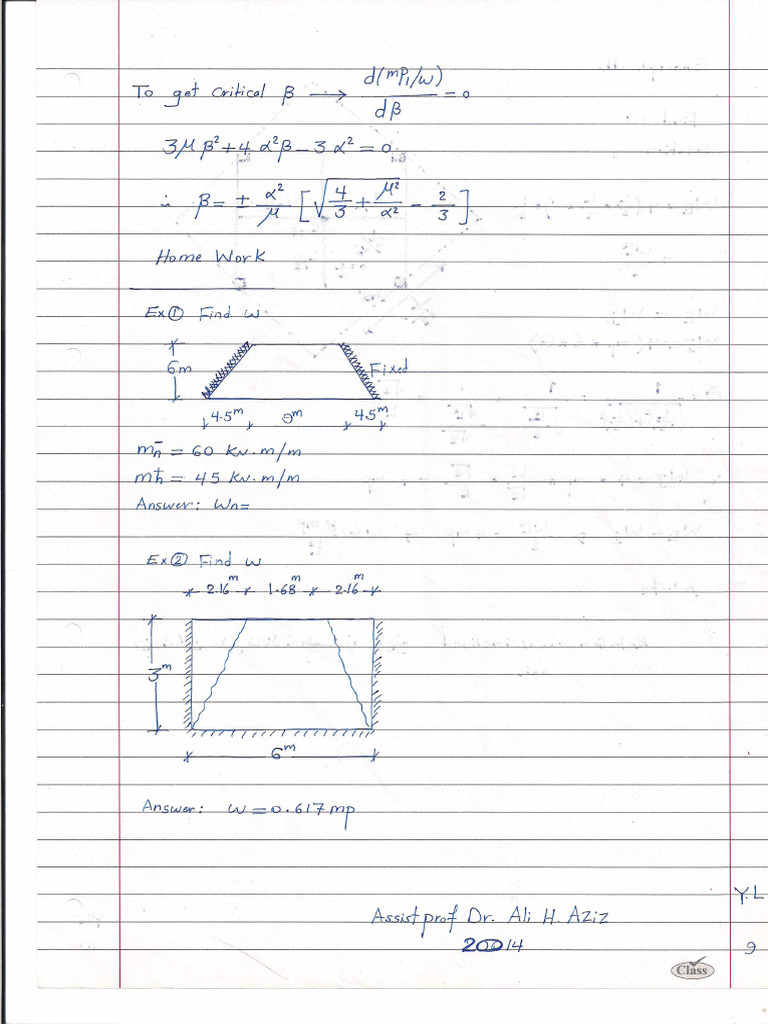 To get Critical β ⟶ d(mp₁/w)/dβ = 0
3μβ² + 4 α²β − 3 α² = 0
∴ β = ± α²/μ [√(4/3 + μ²/α²) − 2/3]
Home Work
Ex① Find w
6m
Fixed
4.5m 9m 4.5m
mn⁻ = 60 kN.m/m
mn⁺ = 45 kN.m/m
Answer: Wn=
Ex② Find w
2.16m 1.68m 2.16m
3m
6m
Answer: w = 0.617 mp
Y.L
Assist prof Dr. Ali H. Aziz
20014
9
Class